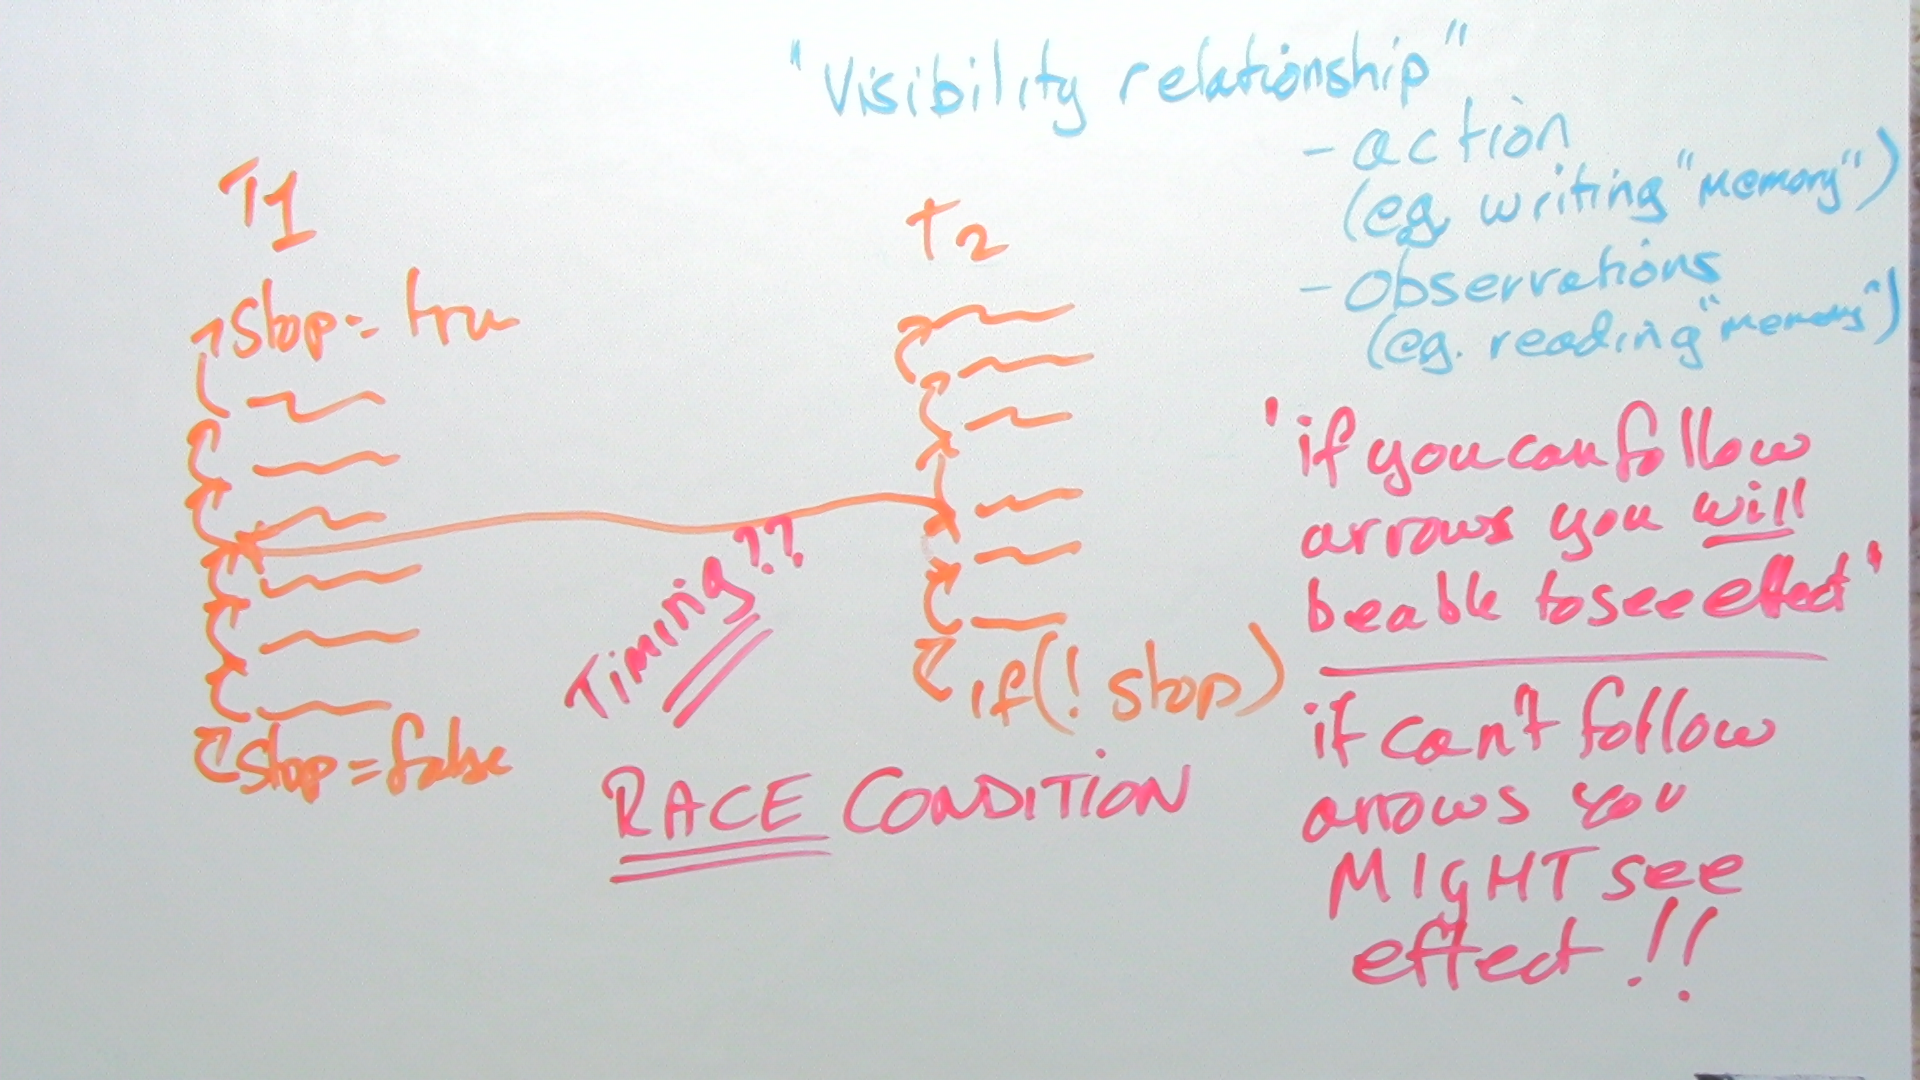 "Visibility relationship"
- action
(eg writing "memory")
- observations
(eg. reading "memory")
T1
stop = tru
stop = false
T2
if(! stop)
Timing??
RACE CONDITION
'if you can follow
arrows you will
be able to see effect'
if can't follow
arrows you
MIGHT see
effect!!